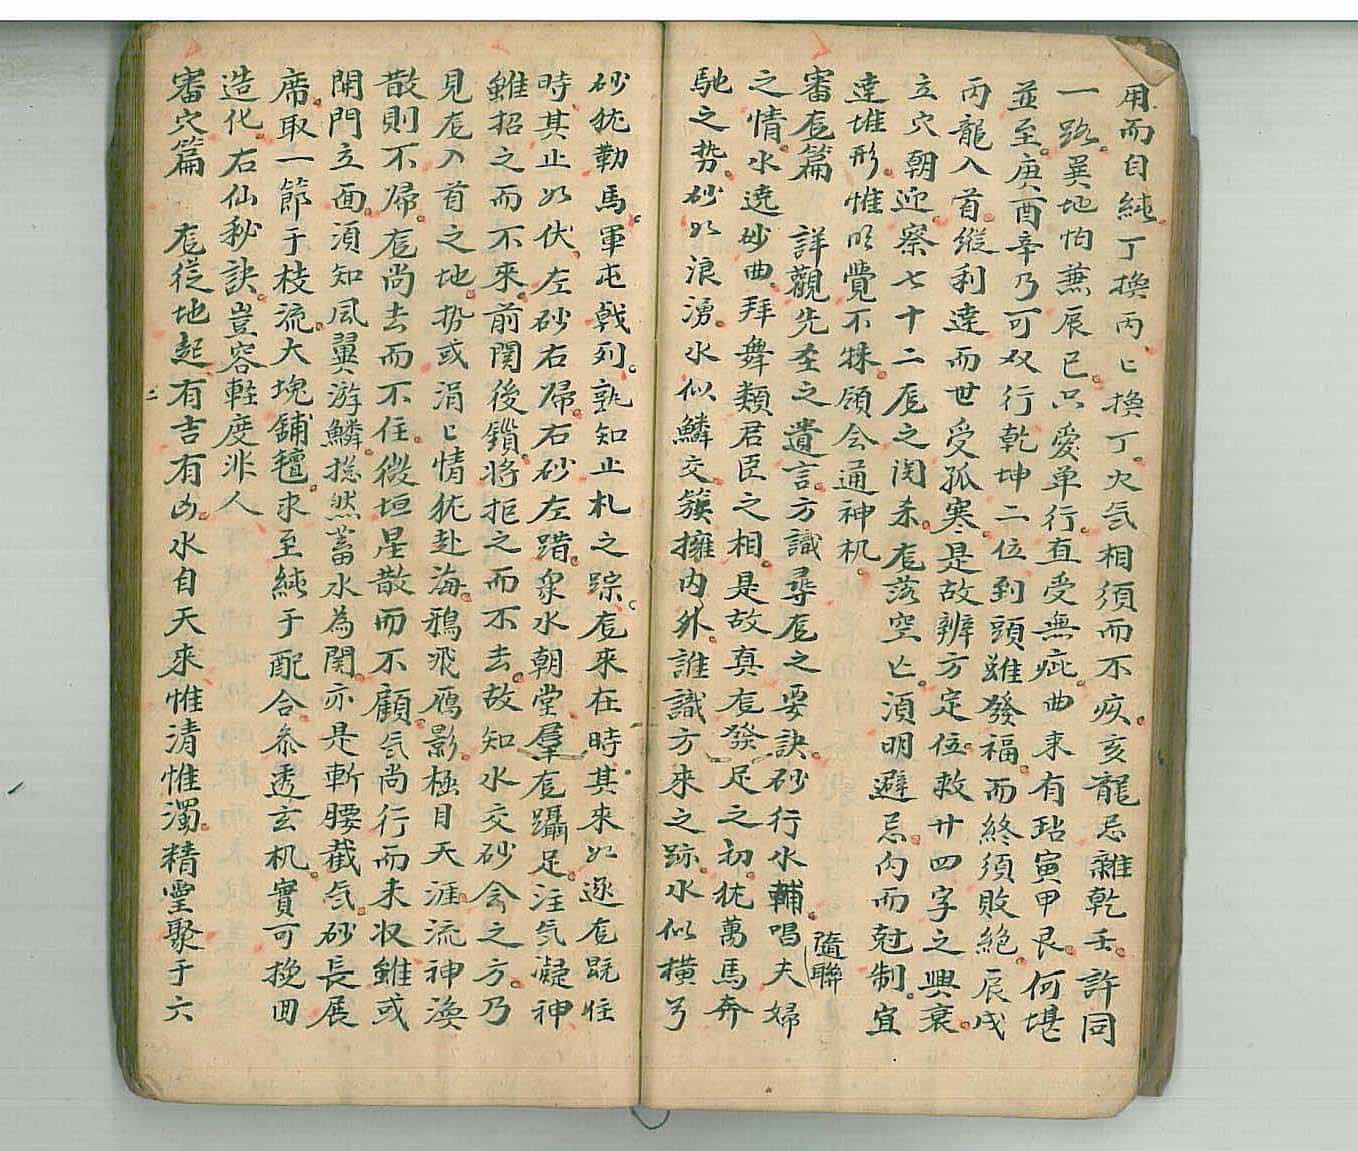 用而自純丁換丙匕換丁火気相須而不疾亥龍忌雜乾壬許同
一路巽地怕蕪辰巳只愛单行直受無疵曲来有玷寅甲艮何堪
並至庚酉辛乃可双行乾坤二位到頭雖發福而終須敗絶辰戌
丙龍入首縱利達而世受孤寒是故辨方定位救廿四字之興衰
立穴朝迎察七十二龙之関系龙落空亡須明避忌向而尅制宜
達堆形惟㫤覺不殊領会通神机
審龙篇 詳觀先圣之遺言方識尋龙之要訣砂行水輔唱夫婦
隨聯
之情水遶砂曲拜舞類君臣之相是故真龙發足之初犹萬馬奔
馳之势砂如浪湧水似鱗交簇擁内外誰識方来之跡水似横弓
砂犹勒馬軍屯戟列孰知止札之踪龙来在時其来如逐龙既住
時其止如伏左砂右帰右砂左踏衆水朝堂羣龙躡足注気凝神
雖招之而不來前関後鎖将拒之而不去故知水交砂会之方乃
見龙入首之地势或涓匕情犹赴海鴉飛鴈影極目天涯流神渙
散則不帰龙尚去而不住微垣星散而不顧気尚行而未収雖或
開門立面須知風翼游鱗揔然蓄水為関亦是斬腰截気砂長展
席取一節于枝流大塊鋪氊求至純于配合叅透玄机實可挽回
造化右仙秘訣豈容軽度非人
審穴篇 龙從地起有吉有凶水自天來惟清惟濁精靈聚于六